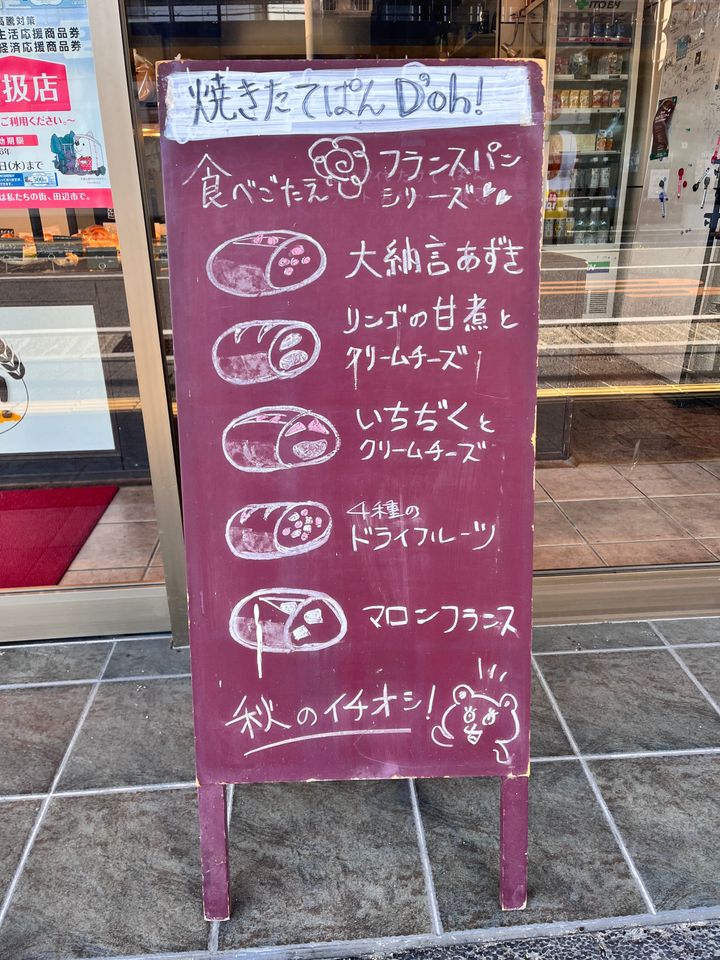 高騰対策
生活応援商品券
経済応援商品券
扱店
ご利用ください。~
効期限
日(水)まで
500
は私たちの街、田辺市で。
ITOEN
焼きたてぱん D'oh!
食べごたえ
フランスパン
シリーズ
大納言あずき
リンゴの甘煮と
クリームチーズ
いちぢくと
クリームチーズ
4種の
ドライフルーツ
マロンフランス
秋のイチオシ!